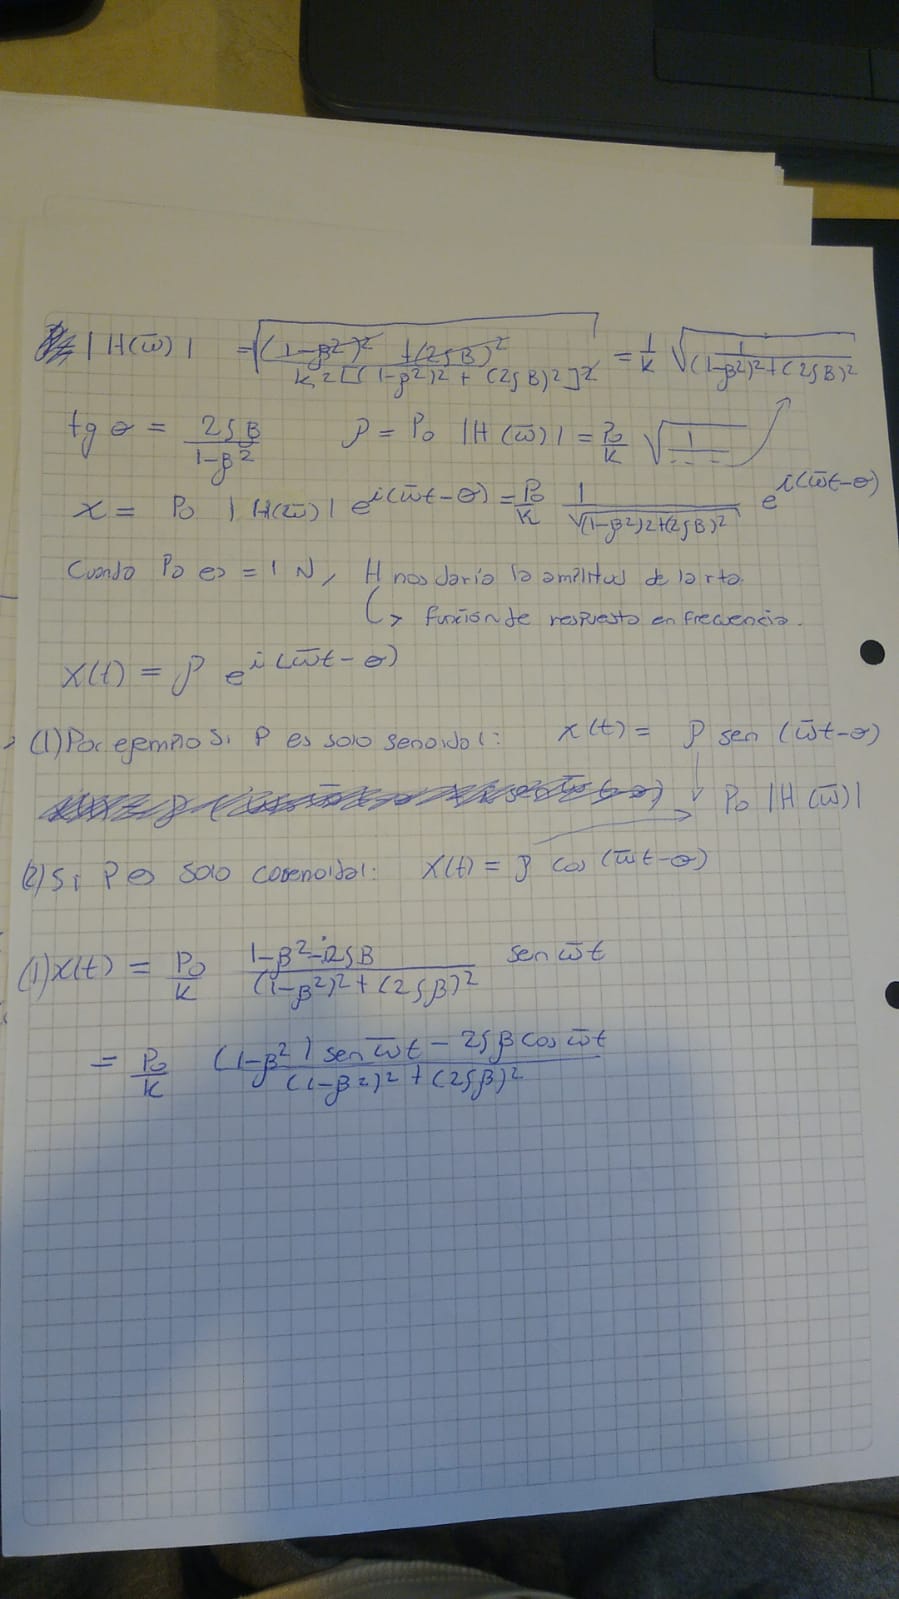 |H(ω̄)| = √((1-β²)² + (2ζβ)² / k²[(1-β²)² + (2ζβ)²]²) = 1/k √(1 / (1-β²)² + (2ζβ)²)
tg θ = 2ζβ / 1-β²   ρ = P₀ |H(ω̄)| = P₀/k √(1 / ---)
x = P₀ |H(ω̄)| e^i(ω̄t-θ) = P₀/k 1/√((1-β²)²+(2ζβ)²) e^i(ω̄t-θ)
Cuando P₀ es = 1 N, H nos daría la amplitud de la rta.
↳ función de respuesta en frecuencia.
x(t) = ρ e^i(ω̄t-θ)
(1) Por ejemplo si P es solo senoidal: x(t) = ρ sen (ω̄t-θ)
P₀ |H(ω̄)|
(2) Si P es solo cosenoidal: x(t) = ρ cos (ω̄t-θ)
(1) x(t) = P₀/k (1-β²-i2ζβ) / ((1-β²)² + (2ζβ)²) sen ω̄t
= P₀/k ((1-β²) sen ω̄t - 2ζβ cos ω̄t) / ((1-β²)² + (2ζβ)²)